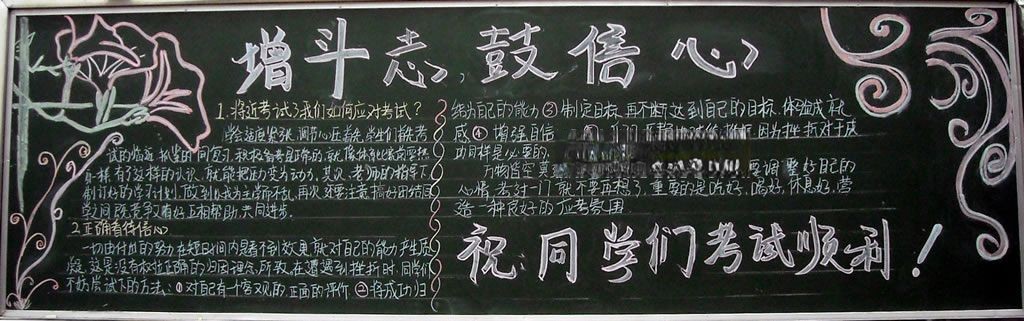 增斗志,鼓信心
1.将近考试了我们如何应对考试?
学会适度紧张,调节心压
试的临近
有了这样的认识,就能把压力变为动力,其次,老师的指导下
制订好的学习计划,再次还要注意搞好团结同
学之间既竞争又相帮助,共同进步.
2.正确看待信心
一切由付出的努力,在短时间内是看不到效果,就对自己的能力产生质
疑,这是没有树立正确的归因理念,所致,在遭遇到挫折时,同学们
不妨尝试下的方法:①对自己有一个客观的,正面的评价 ②将成功归
结为自己的能力③制定目标,再不断达到自己的目标,体验成就
感④增强自信 因为挫折对于成
功同样是必要的
万物皆空 要调整好自己的
心情,考过一门就不要再想了,重要的是吃好,喝好,休息好,营
造一种良好的应考氛围
祝:同学们考试顺利!